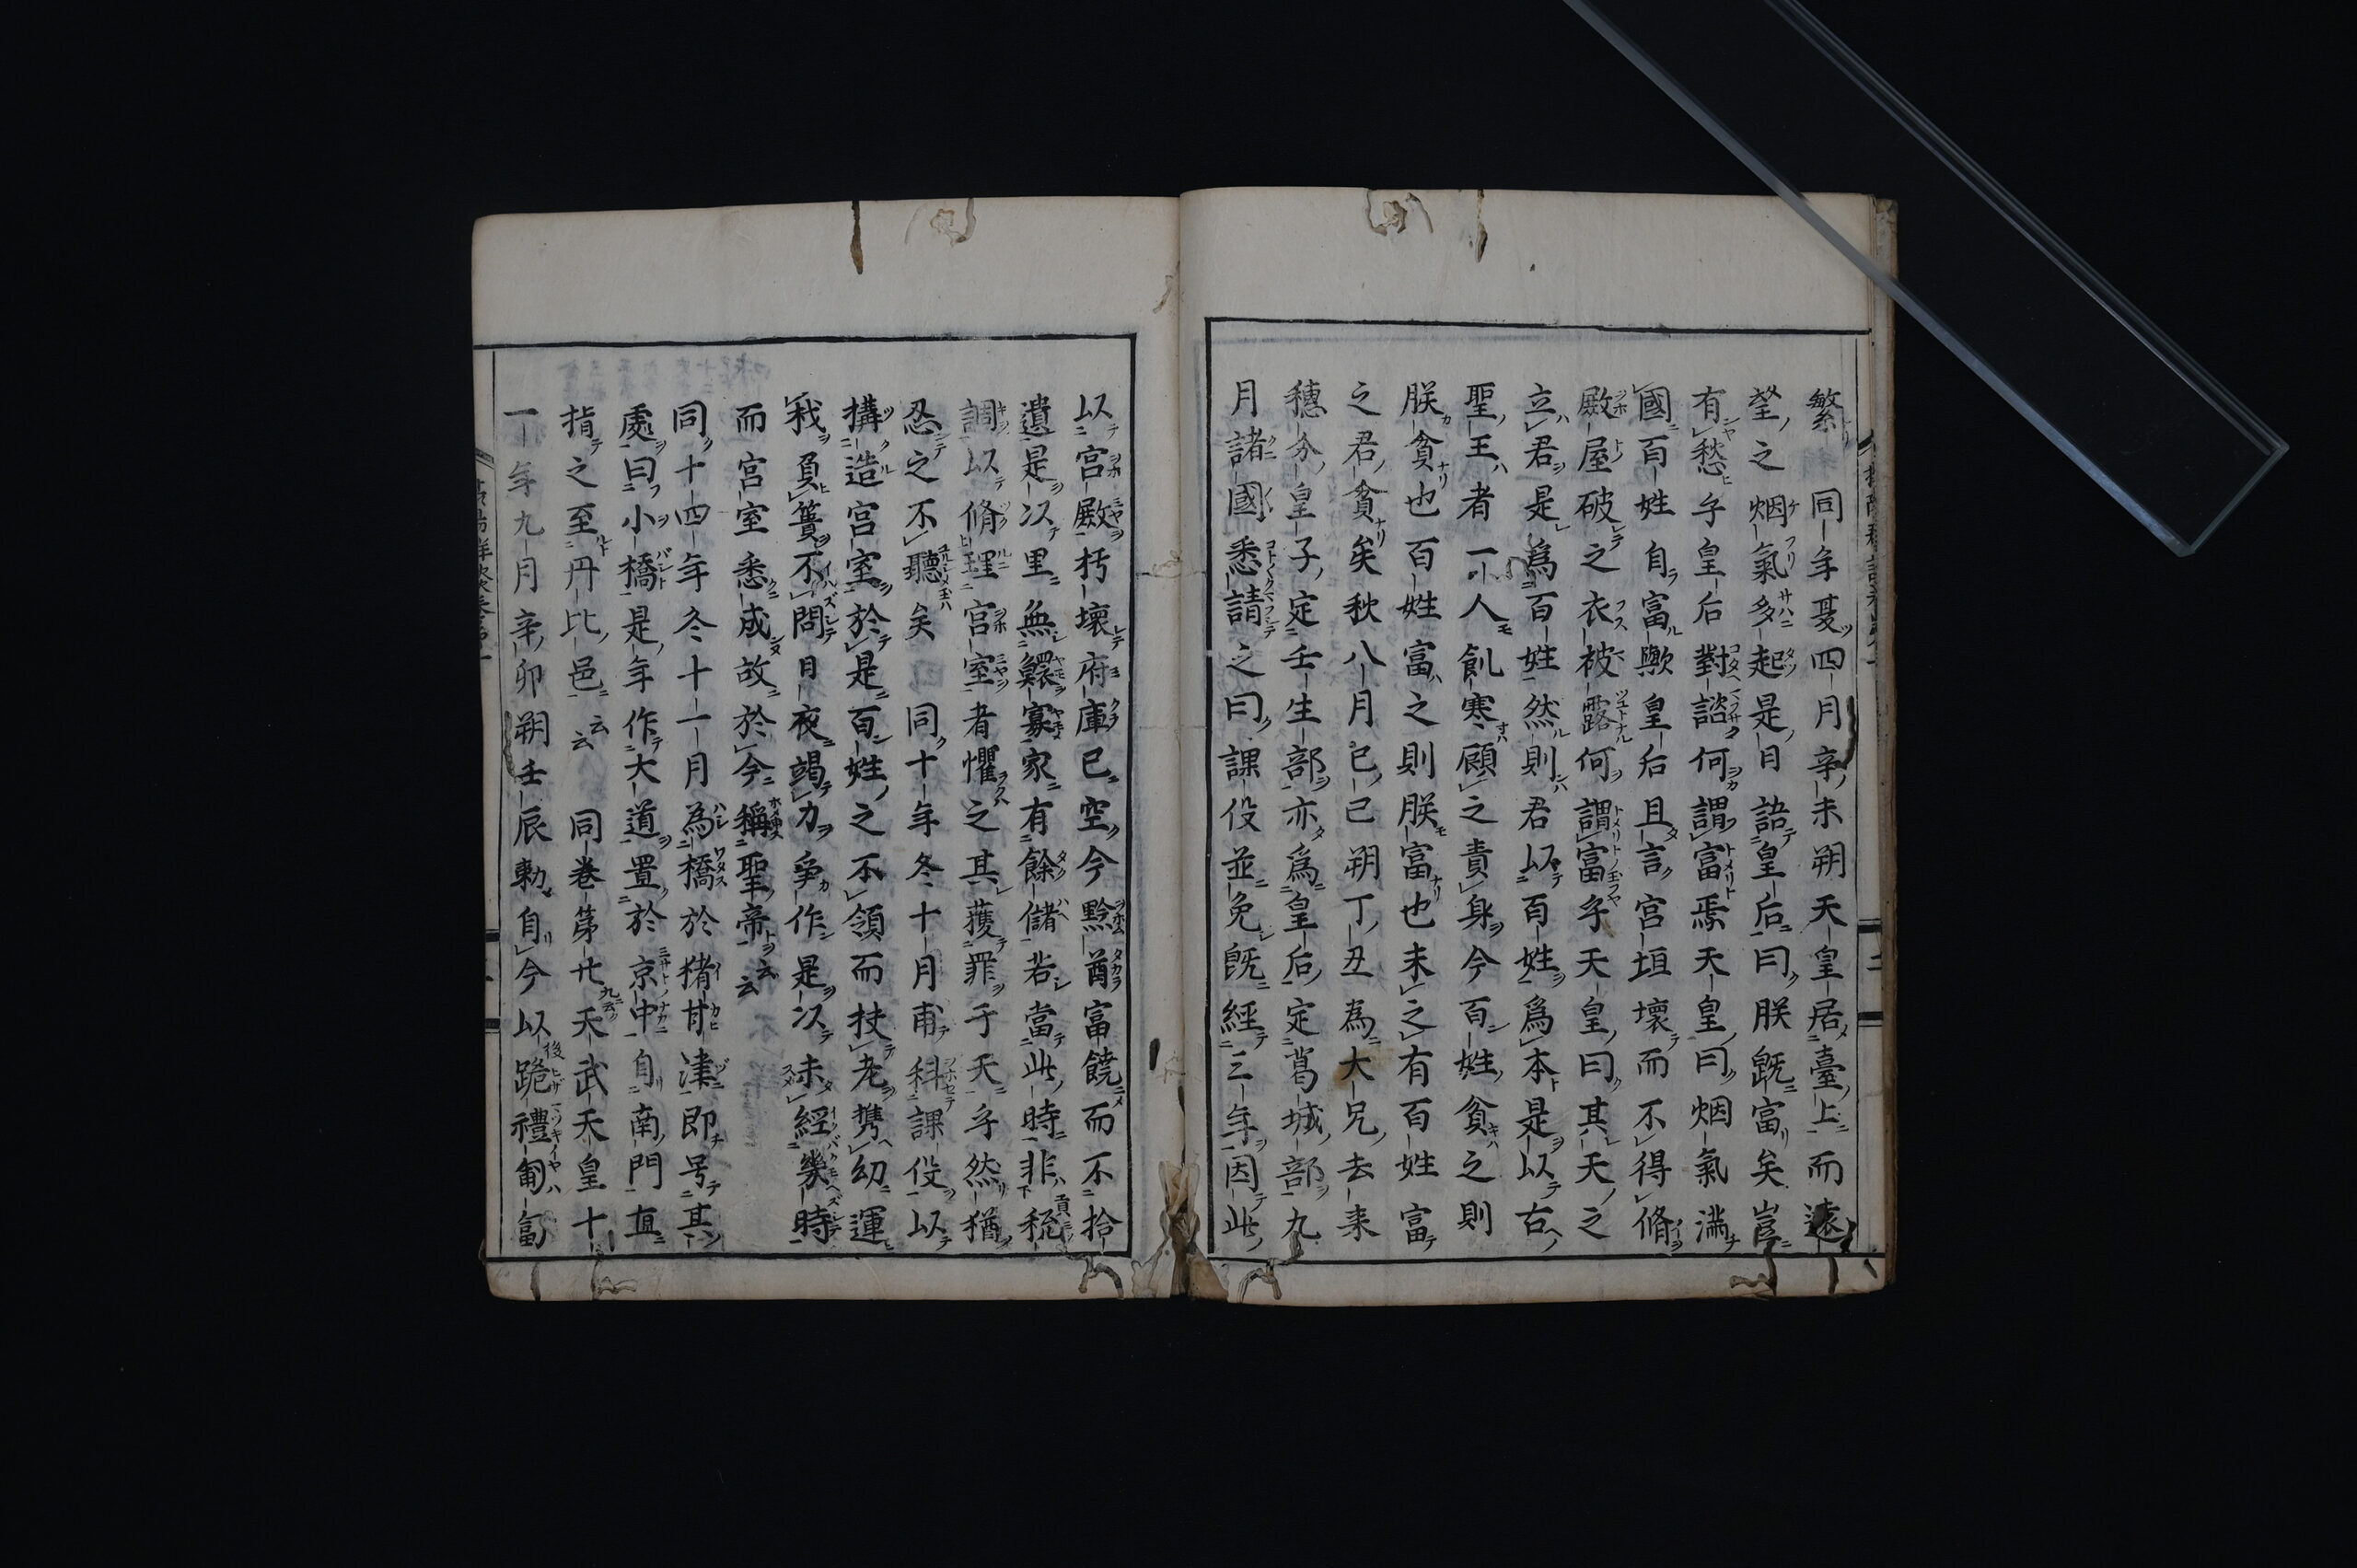 繁 同年夏四月辛未朔天皇居臺上而遠
望之烟氣多起是日語皇后曰朕既富矣豈
有愁乎皇后對諮何謂富焉天皇曰烟氣滿
國百姓自富歟皇后且言宮垣壞而不得脩
殿屋破之衣被露何謂富乎天皇曰其天之
立君是爲百姓然則君以百姓爲本是以古
聖王者一人飢寒顧之責身今百姓貧之則
朕貧也百姓富之則朕富也未之有百姓富
之君貧矣秋八月己巳朔丁丑為大兄去来
穗分皇子定壬生部亦爲皇后定葛城部九
月諸國悉請之曰課役並免既經三年因此
以宮殿朽壞府庫已空今黔首富饒而不拾
遺是以里無鰥寡家有餘儲若當此時非税
調以脩理宮室者懼之其獲罪于天乎然猶
忍之不聽矣 同十年冬十月甫科課役以
構造宮室於是百姓之不領而扶老携幼運
材負簣不問日夜竭力爭作是以未經幾時
而宮室悉成故於今稱聖帝云云
同十四年冬十一月為橋於猪甘津即号其
處曰小橋是年作大道置於京中自南門直
指之至丹比邑云云 同卷第廿九云天武天皇十
一年九月辛卯朔壬辰勅自今以後跪禮匍匐